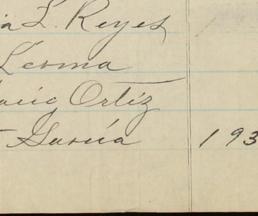 L. Reyes
Lerma
Ortiz
Garcia 193